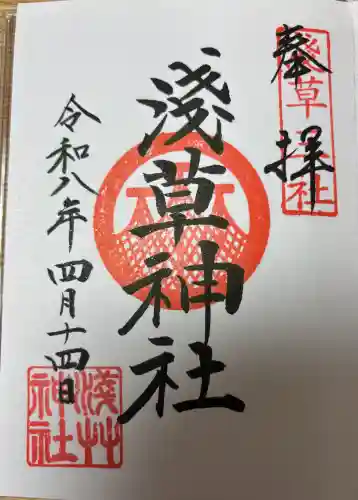 奉拝
淺草神社
淺草神社
令和八年四月十四日
淺草神社